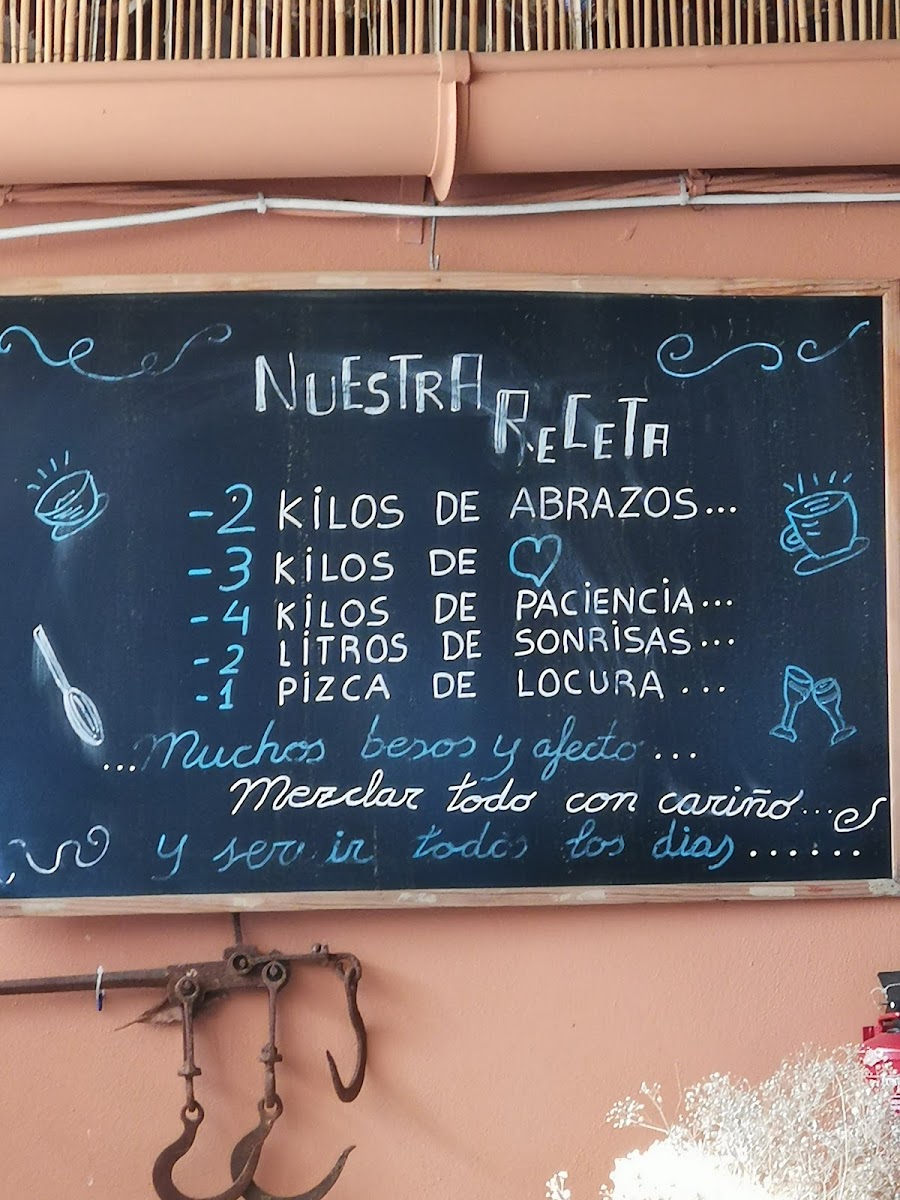 NUESTRA RECETA
-2 KILOS DE ABRAZOS...
-3 KILOS DE ♡
-4 KILOS DE PACIENCIA...
-2 LITROS DE SONRISAS...
-1 PIZCA DE LOCURA...
...Muchos besos y afecto...
Mezclar todo con cariño...
y servir todos los dias......